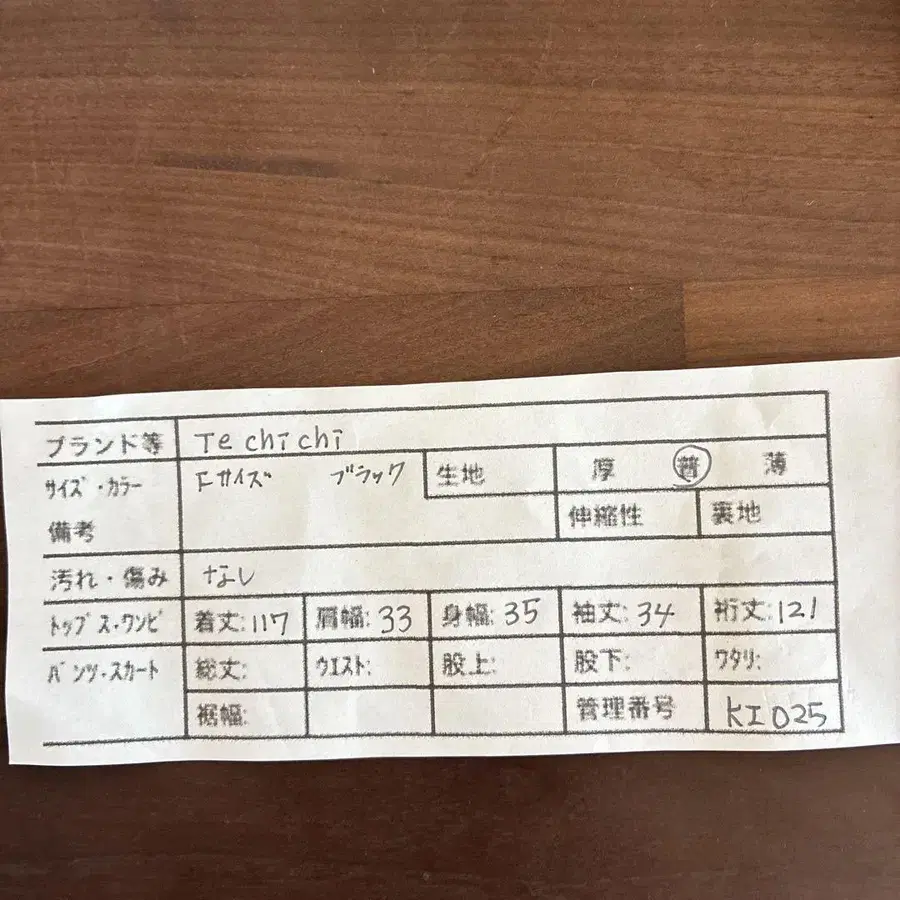 ブランド等 Te chichi
サイズ・カラー Fサイズ ブラック 生地 厚 普 薄
備考 伸縮性 裏地
汚れ・傷み なし
トップス・ワンピ 着丈:117 肩幅:33 身幅:35 袖丈:34 裄丈:121
パンツ・スカート 総丈: ウエスト: 股上: 股下: ワタリ:
裾幅: 管理番号 KI025